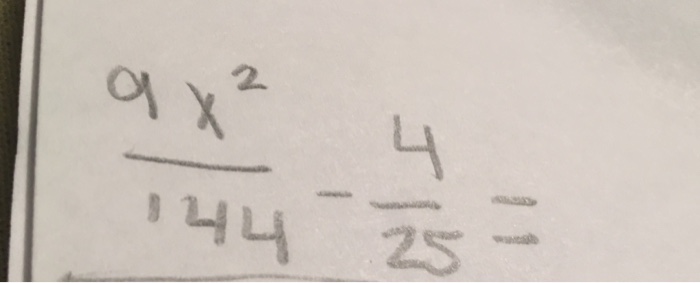 9x²/144 - 4/25 =